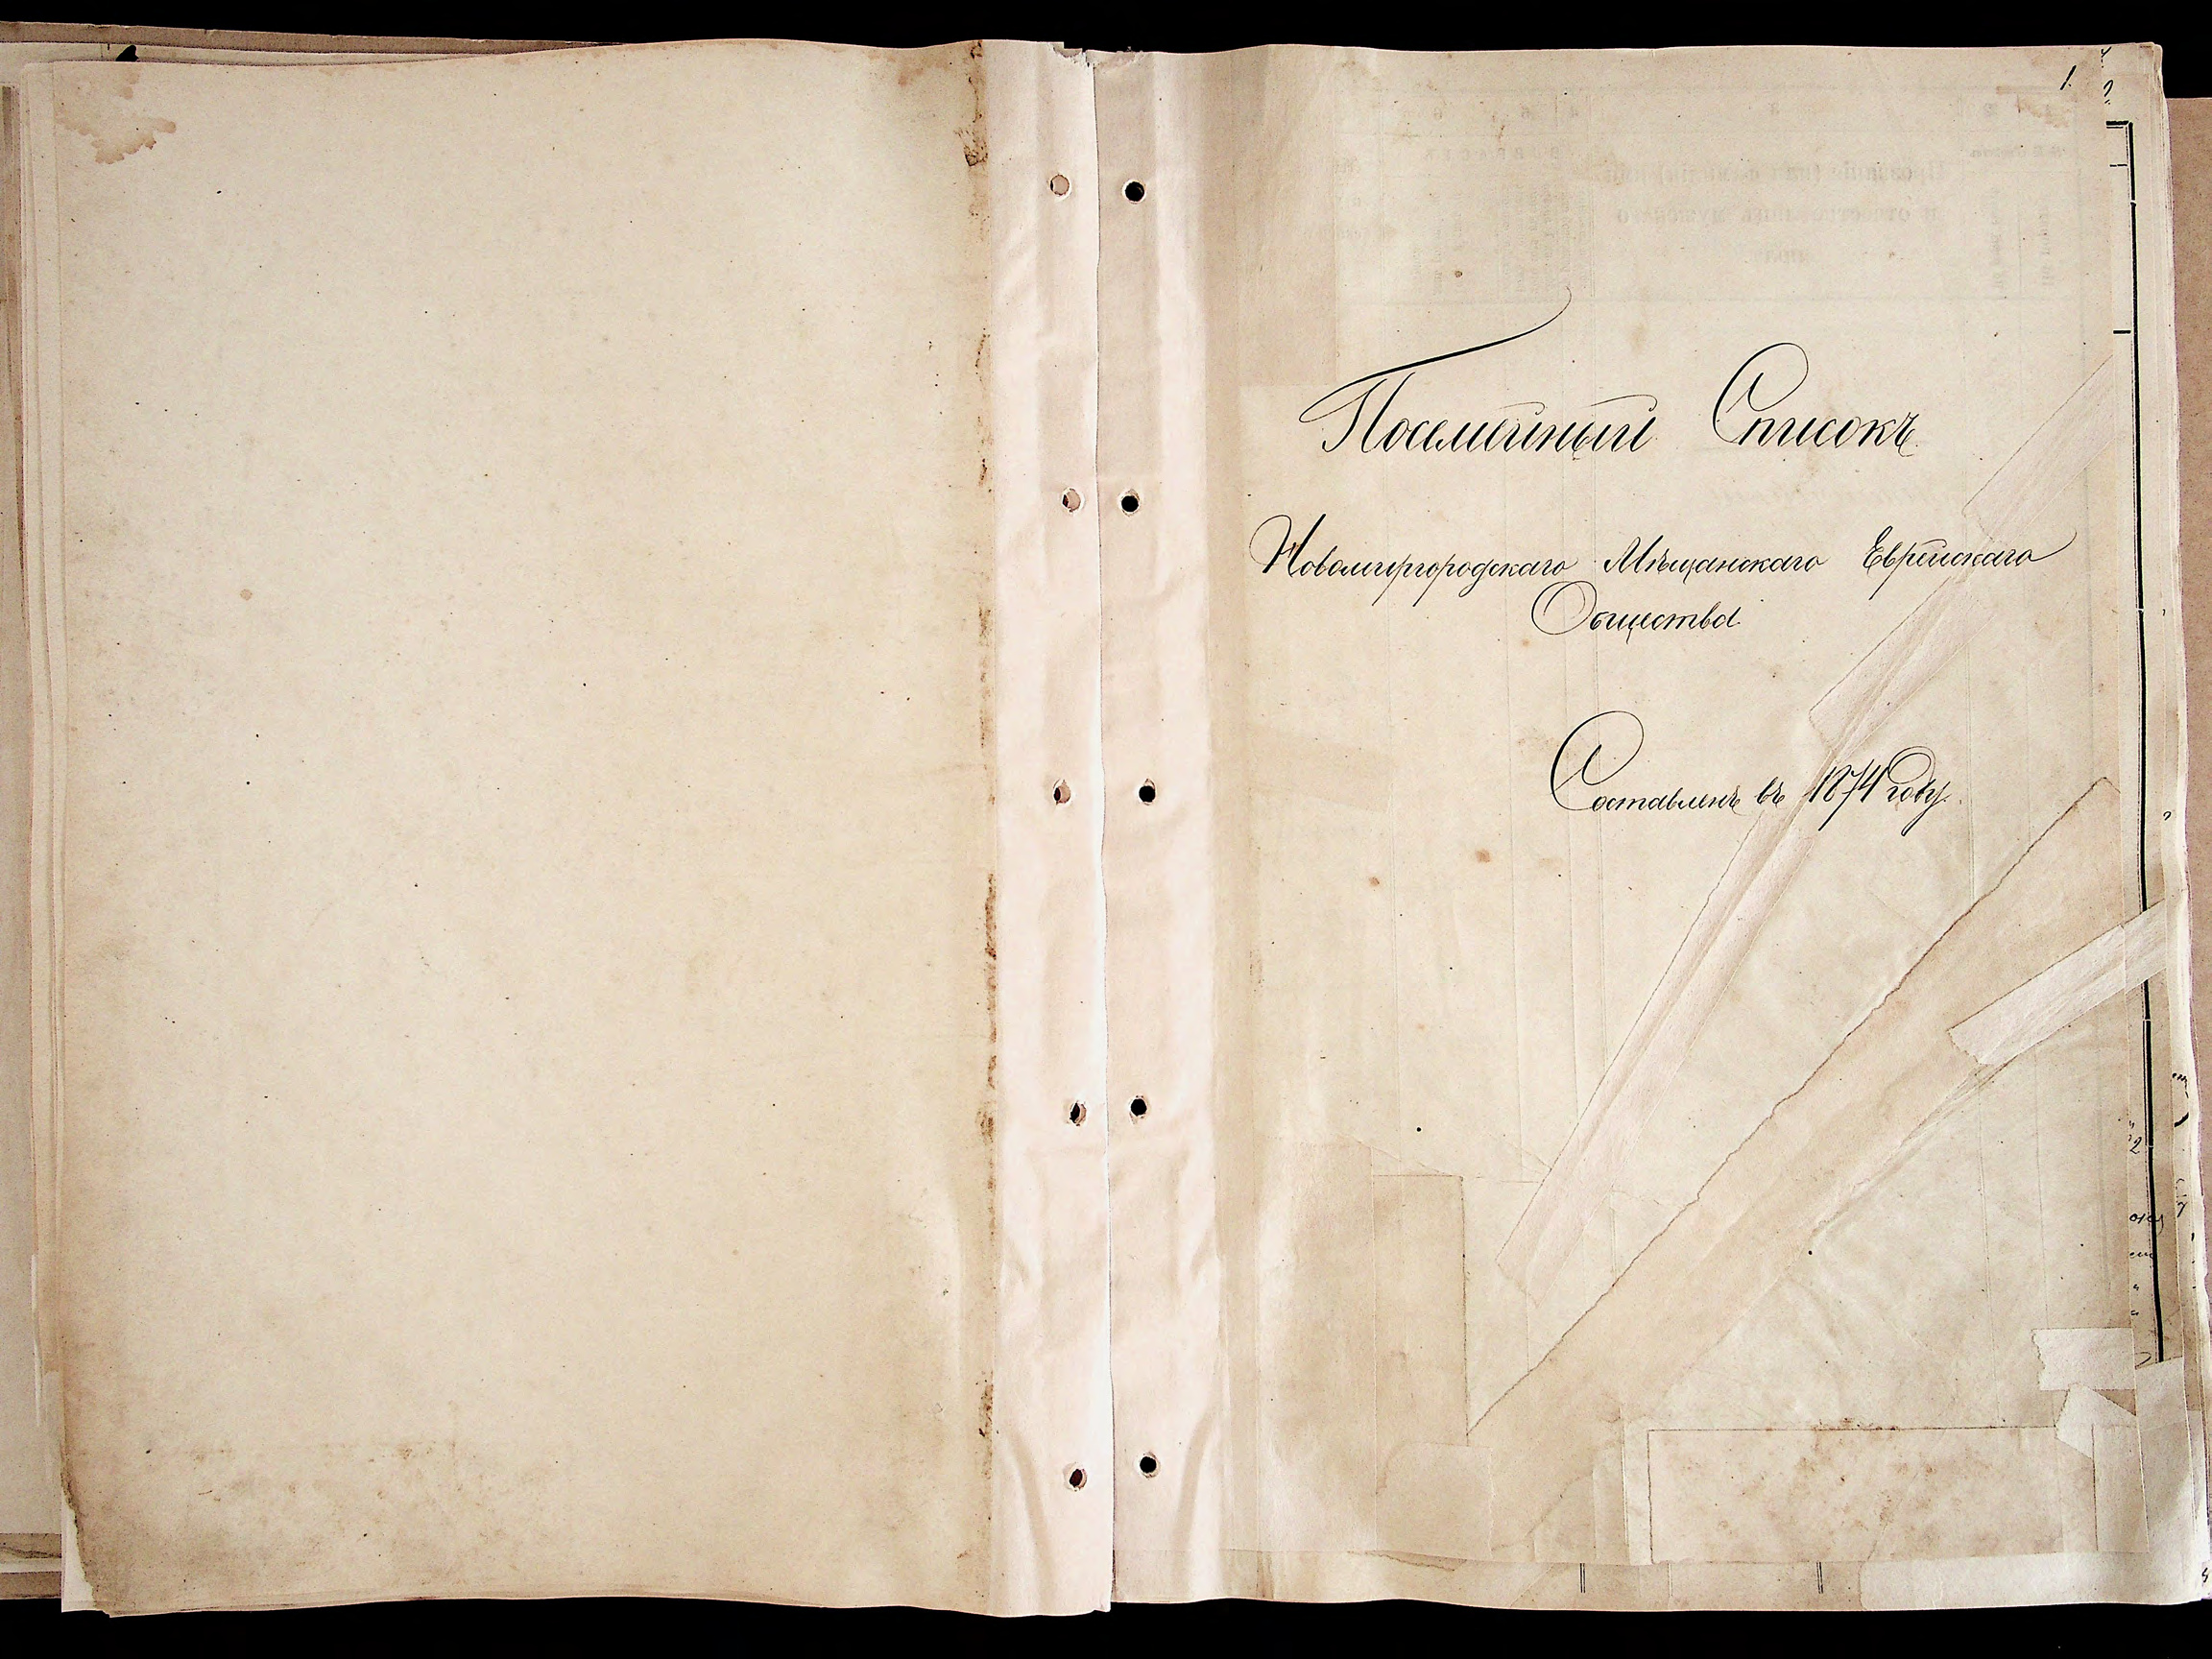 1.
Посемейный Списокъ
Новомиргородскаго Мѣщанскаго Еврейскаго
Общества
Составленъ въ 1874 году.